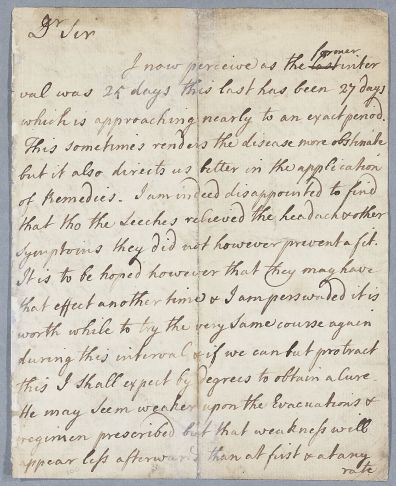 Dr Sir
I now perceive as the former
last inter
val was 25 days this last has been 27 days
which is approaching nearly to an exact period.
This sometimes renders the disease more obstinate
but it also directs us better in the application
of Remedies. I am indeed disappointed to find
that tho the Leeches relieved the headach & other
symptoms they did not however prevent a fit.
It is to be hoped however that they may have
that effect another time & I am perswaded it is
worth while to try the very same course again
during this interval & if we can but protract
this I shall expect by degrees to obtain a Cure.
He may seem weaker upon the Evacuations &
regimen prescribed but that weakness will
appear less afterwards than at first & at any
rate